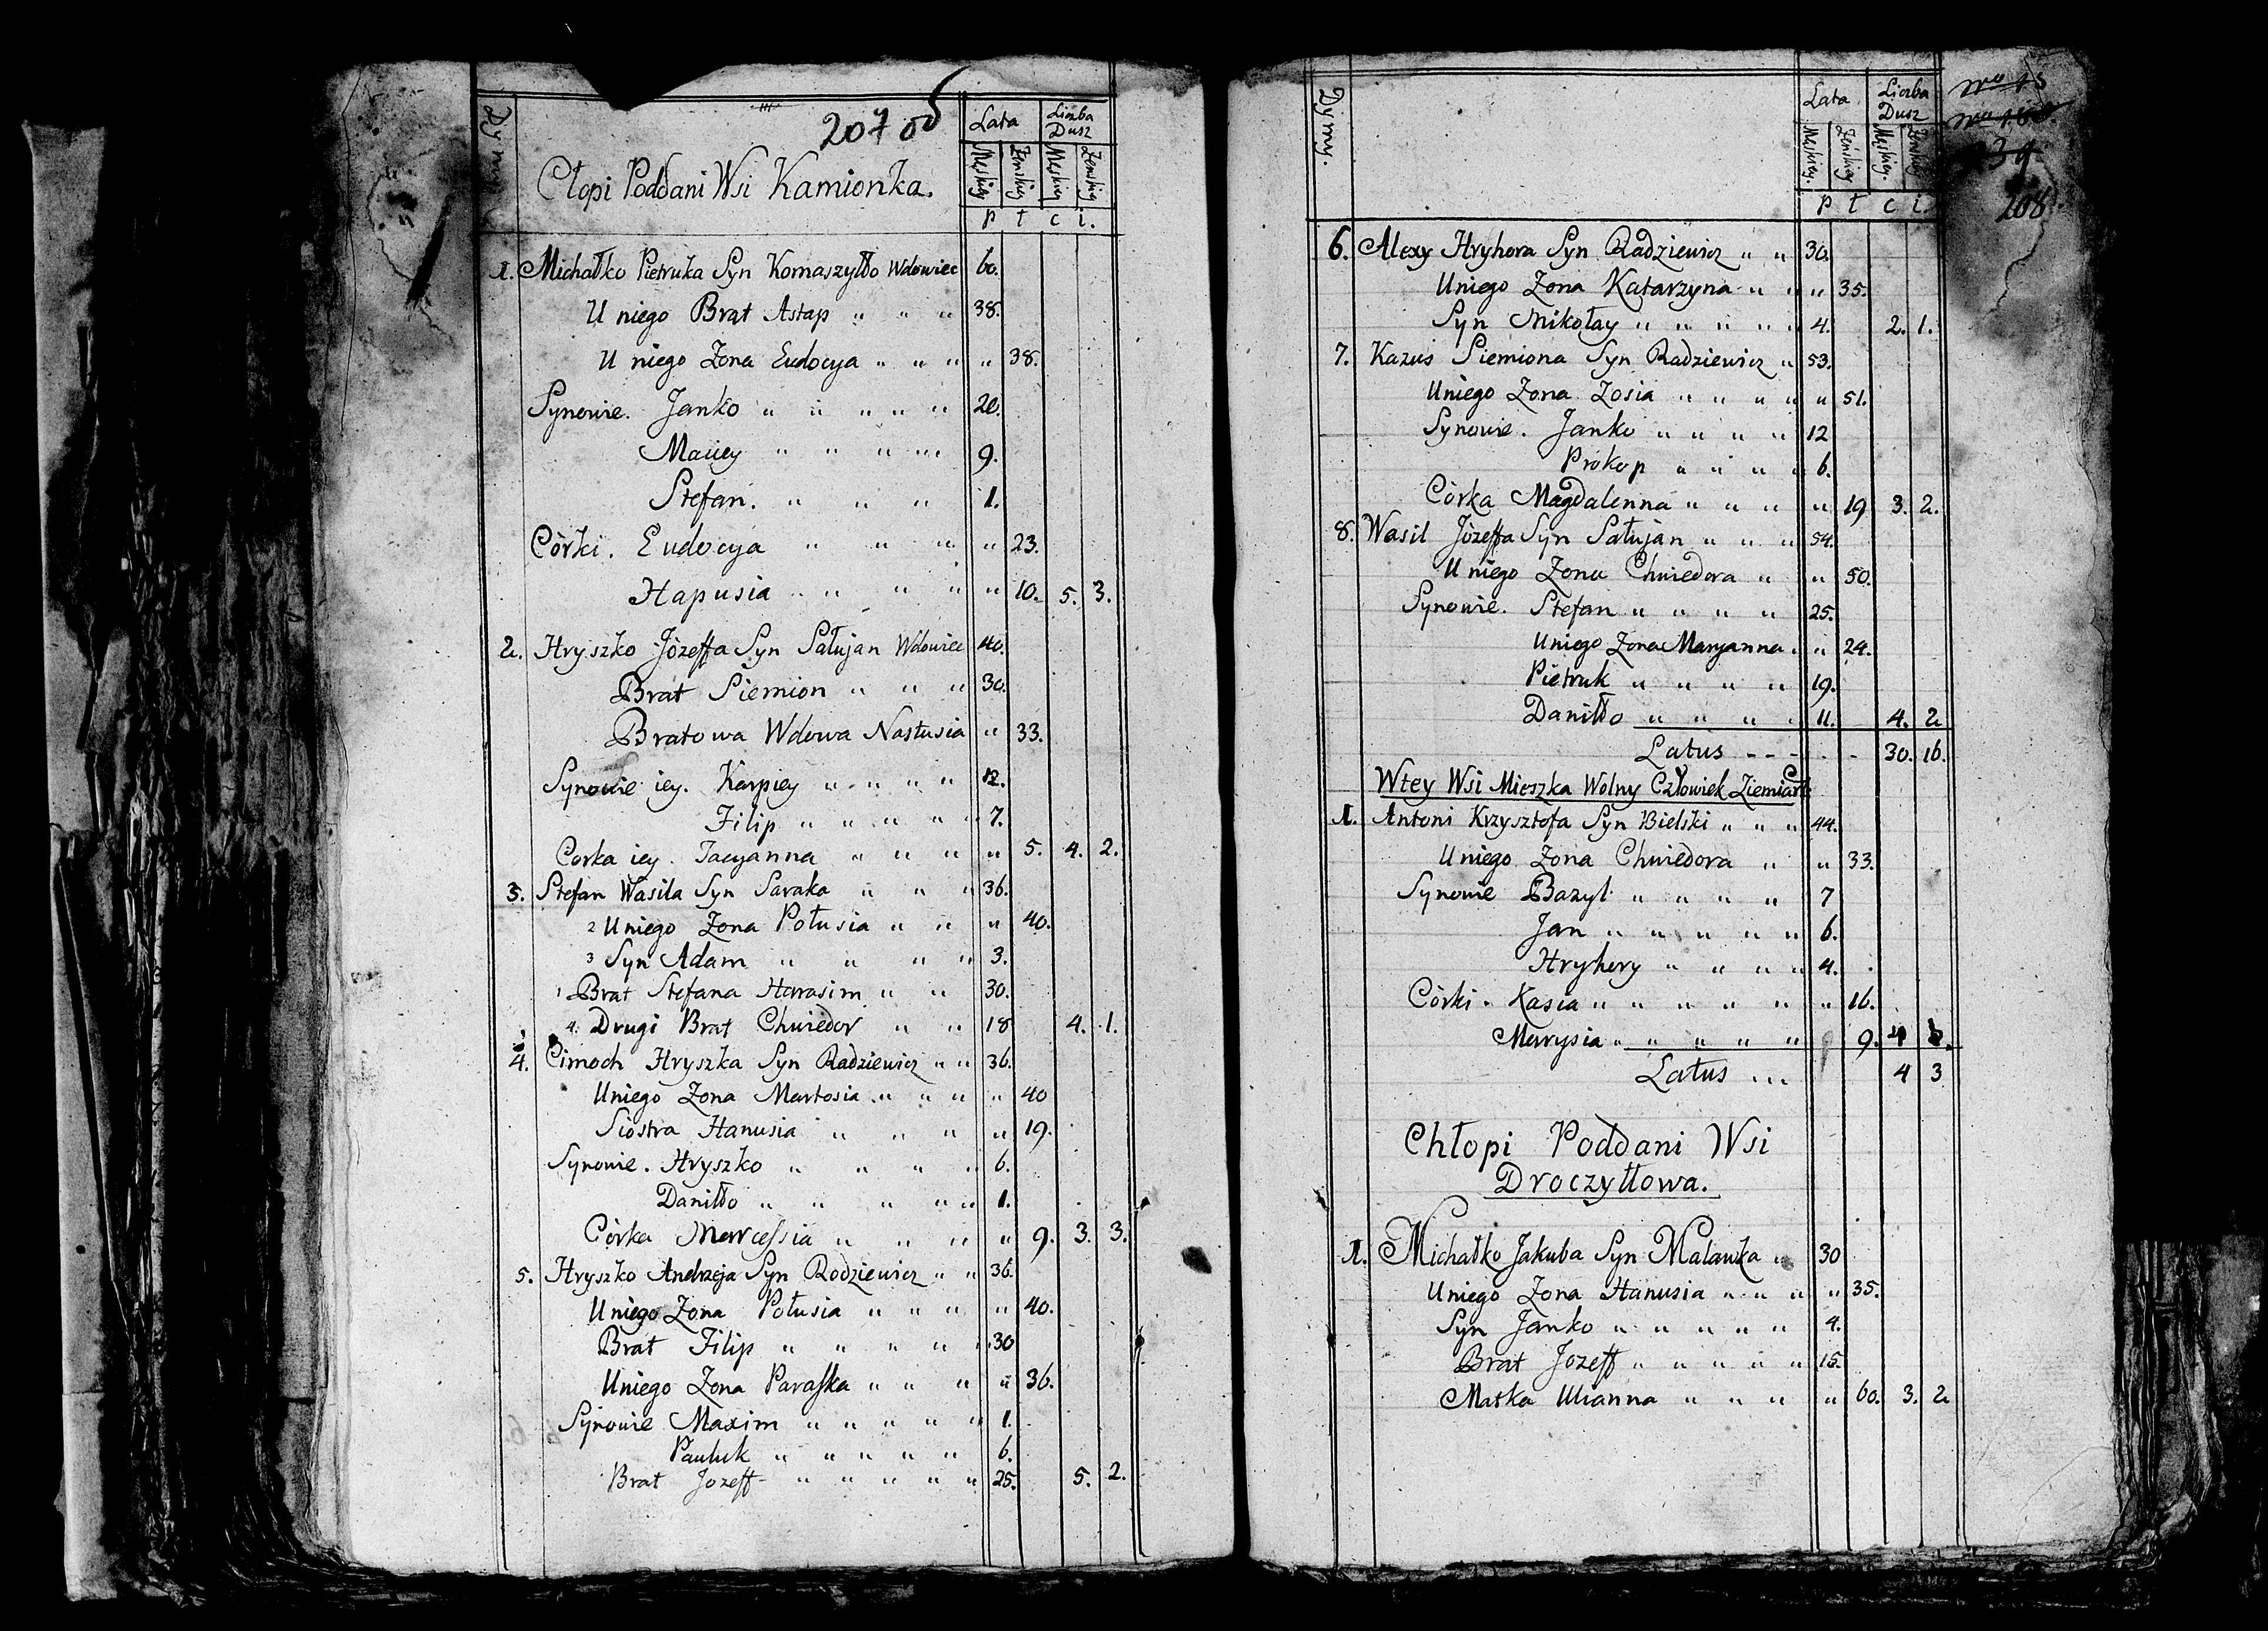 207 od
Dymy
Lata
Liczba Dusz
Męskiey Żenskiey Męskiey Żenskiey
Cłopi Poddani Wsi Kamionka.
p ł c i.
1. Michałko Pietruka Syn Kornaszyłło Wdowiec 60.
U niego Brat Astap " " " 38.
U niego Zona Eudocya " " " " 38.
Synowie. Janko " " " " " 20.
Maciey " " " " " 9.
Stefan. " " " 1.
Còrki. Eudocya " " " " 23.
Hapusia " " " " " 10. 5. 3.
2. Hryszko Józeffa Syn Sałujan Wdowiec 40.
Brat Siemion " " " 30.
Bratowa Wdowa Nastusia " 33.
Synowie iey. Karpiey " " " " 12.
Filip " " " " " 7.
Corka iey. Tacyanna " " " " 5. 4. 2.
3. Stefan Wasila Syn Saraka " " " 36.
2 Uniego Zona Połusia " " " 40.
3 Syn Adam " " " " 3.
1 Brat Stefana Harasim " " 30.
4. Drugi Brat Chwiedor " " 18 4. 1.
4. Cimoch Hryszka Syn Radziewicz " " 36.
Uniego Zona Martosia " " " " 40
Siostra Hanusia " " " " 19.
Synowie. Hryszko " " " " 6.
Daniłło " " " " " 1.
Còrka Marcessia " " " " 9. 3. 3.
5. Hryszko Andrzeja Syn Rodziewicz " " 36.
Uniego Zona Połusia " " " " 40.
Brat Filip " " " " " 30
Uniego Zona Paraska " " " " 36.
Synowie Maxim " " " " " 1.
Pauluk " " " " " 6.
Brat Jozeff " " " " " 25. 5. 2.
Dymy.
Lata
Liczba Dusz
Męskiey. Żeńskiey Męskiey. Żeńskiey
p ł c i.
208
6. Alexy Hryhora Syn Radziewicz " " 30.
Uniego Zona Katarzyna " " " 35.
Syn Mikołay " " " " " 4. 2. 1.
7. Kazuś Siemiona Syn Radziewicz " 53.
Uniego Zona Zosia " " " " " 51.
Synowie. Janko " " " " 12
Prokop " " " " 6.
Còrka Magdalenna " " " " 19 3. 2.
8. Wasil Józeffa Syn Sałujan " " " 54.
Uniego Zona Chwiedora " " 50.
Synowie. Stefan " " " " 25.
Uniego Zona Maryanna " " 24.
Pietruk " " " " 19.
Daniłło " " " " 11. 4. 2
Latus - - - - - 30. 16.
Wtey Wsi Mieszka Wolny Człowiek Ziemianin
1. Antoni Krzysztofa Syn Bielski " " " 44.
Uniego Zona Chwiedora " " 33.
Synowie Bazyl " " " " 7
Jan " " " " " 6.
Hryhory " " " " 4.
Còrki. Kasia " " " " " " 16.
Marysia " " " " " 9. 4
Latus ... 4 3
Chłopi Poddani Wsi
Droczyłłowa.
1. Michałko Jakuba Syn Malawka " 30
Uniego Zona Hanusia " " " " 35.
Syn Janko " " " " " 4.
Brat Jozeff " " " " " 15.
Matka Ulianna " " " " 60. 3. 2